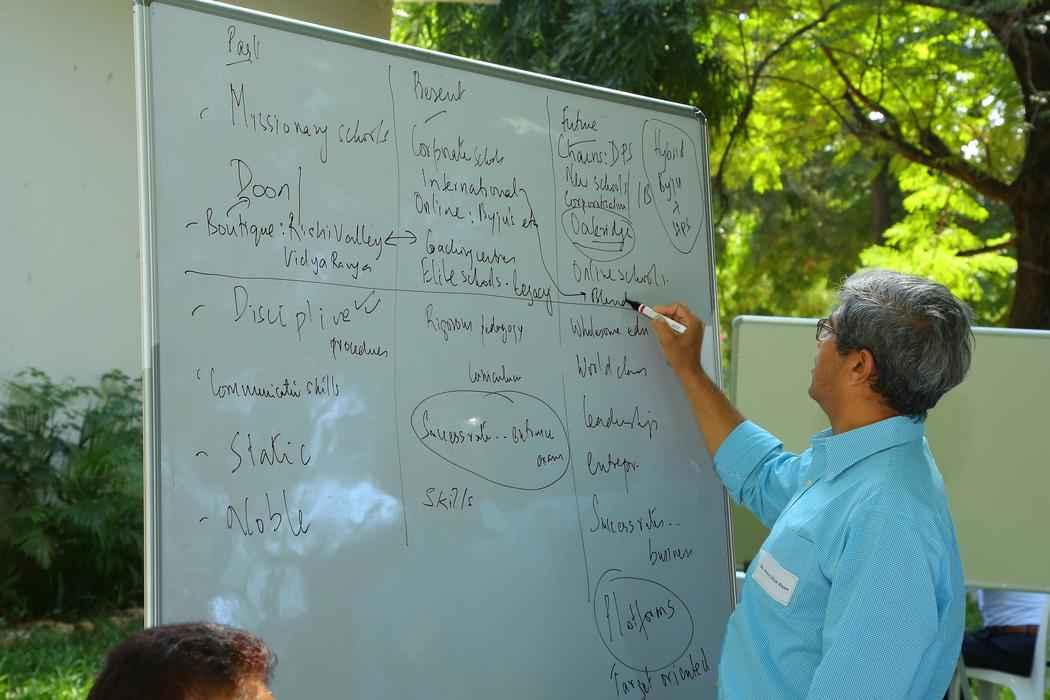 Past
- Missionary schools
Doon
- Boutique: Rishi Valley
Vidya Ranya
- Disciplive
procedures
- Communicatin skills
- Static
- Noble
Present
Corporate schools
International
Online: Byju's etc
Coaching centres
Elite schools. Legacy
Rigorous pedagogy
Curriculum
Success rate... entrance
exam
Skills
Future
Chains: DPS
New schools / IB
Corporatisation
Oakridge
Online schools.
Blend
Wholesome edu
World class
Leadership
Entrepr.
Success rates...
business
Platforms
Target oriented
Hybrid
Byju
+
DPS